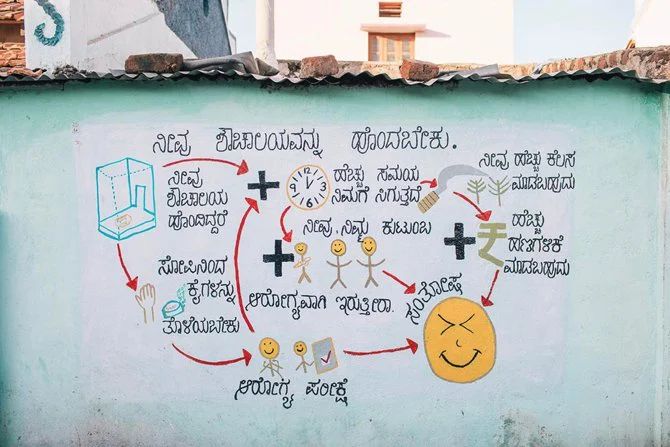 ನೀವು ಶೌಚಾಲಯವನ್ನು ಹೊಂದಬೇಕು.
ನೀವು
ಶೌಚಾಲಯ
ಹೊಂದಿದ್ದರೆ
ಹೆಚ್ಚು ಸಮಯ
ನಿಮಗೆ ಸಿಗುತ್ತದೆ
ನೀವು ಹೆಚ್ಚು ಕೆಲಸ
ಮಾಡಬಹುದು
ನೀವು, ನಿಮ್ಮ ಕುಟುಂಬ
ಆರೋಗ್ಯವಾಗಿ ಇರುತ್ತೀರಾ.
ಹೆಚ್ಚು
ಹಣಗಳಿಕೆ
ಮಾಡಬಹುದು
ಸೋಪಿನಿಂದ
ಕೈಗಳನ್ನು
ತೊಳೆಯಬೇಕು
ಸಂತೋಷ
ಆರೋಗ್ಯ ಪರೀಕ್ಷೆ